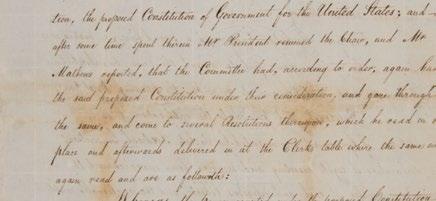 tion, the proposed Constitution of Government for the United States; and
after some time spent therein Mr President resumed the Chair, and Mr
Mathews reported, that the Committee had, according to order, again had
the said proposed Constitution under their consideration, and gone through
the same, and come to several Resolutions thereupon, which he read in
place and afterwards delivered in at the Clerks table where the same
again read and are as followeth: